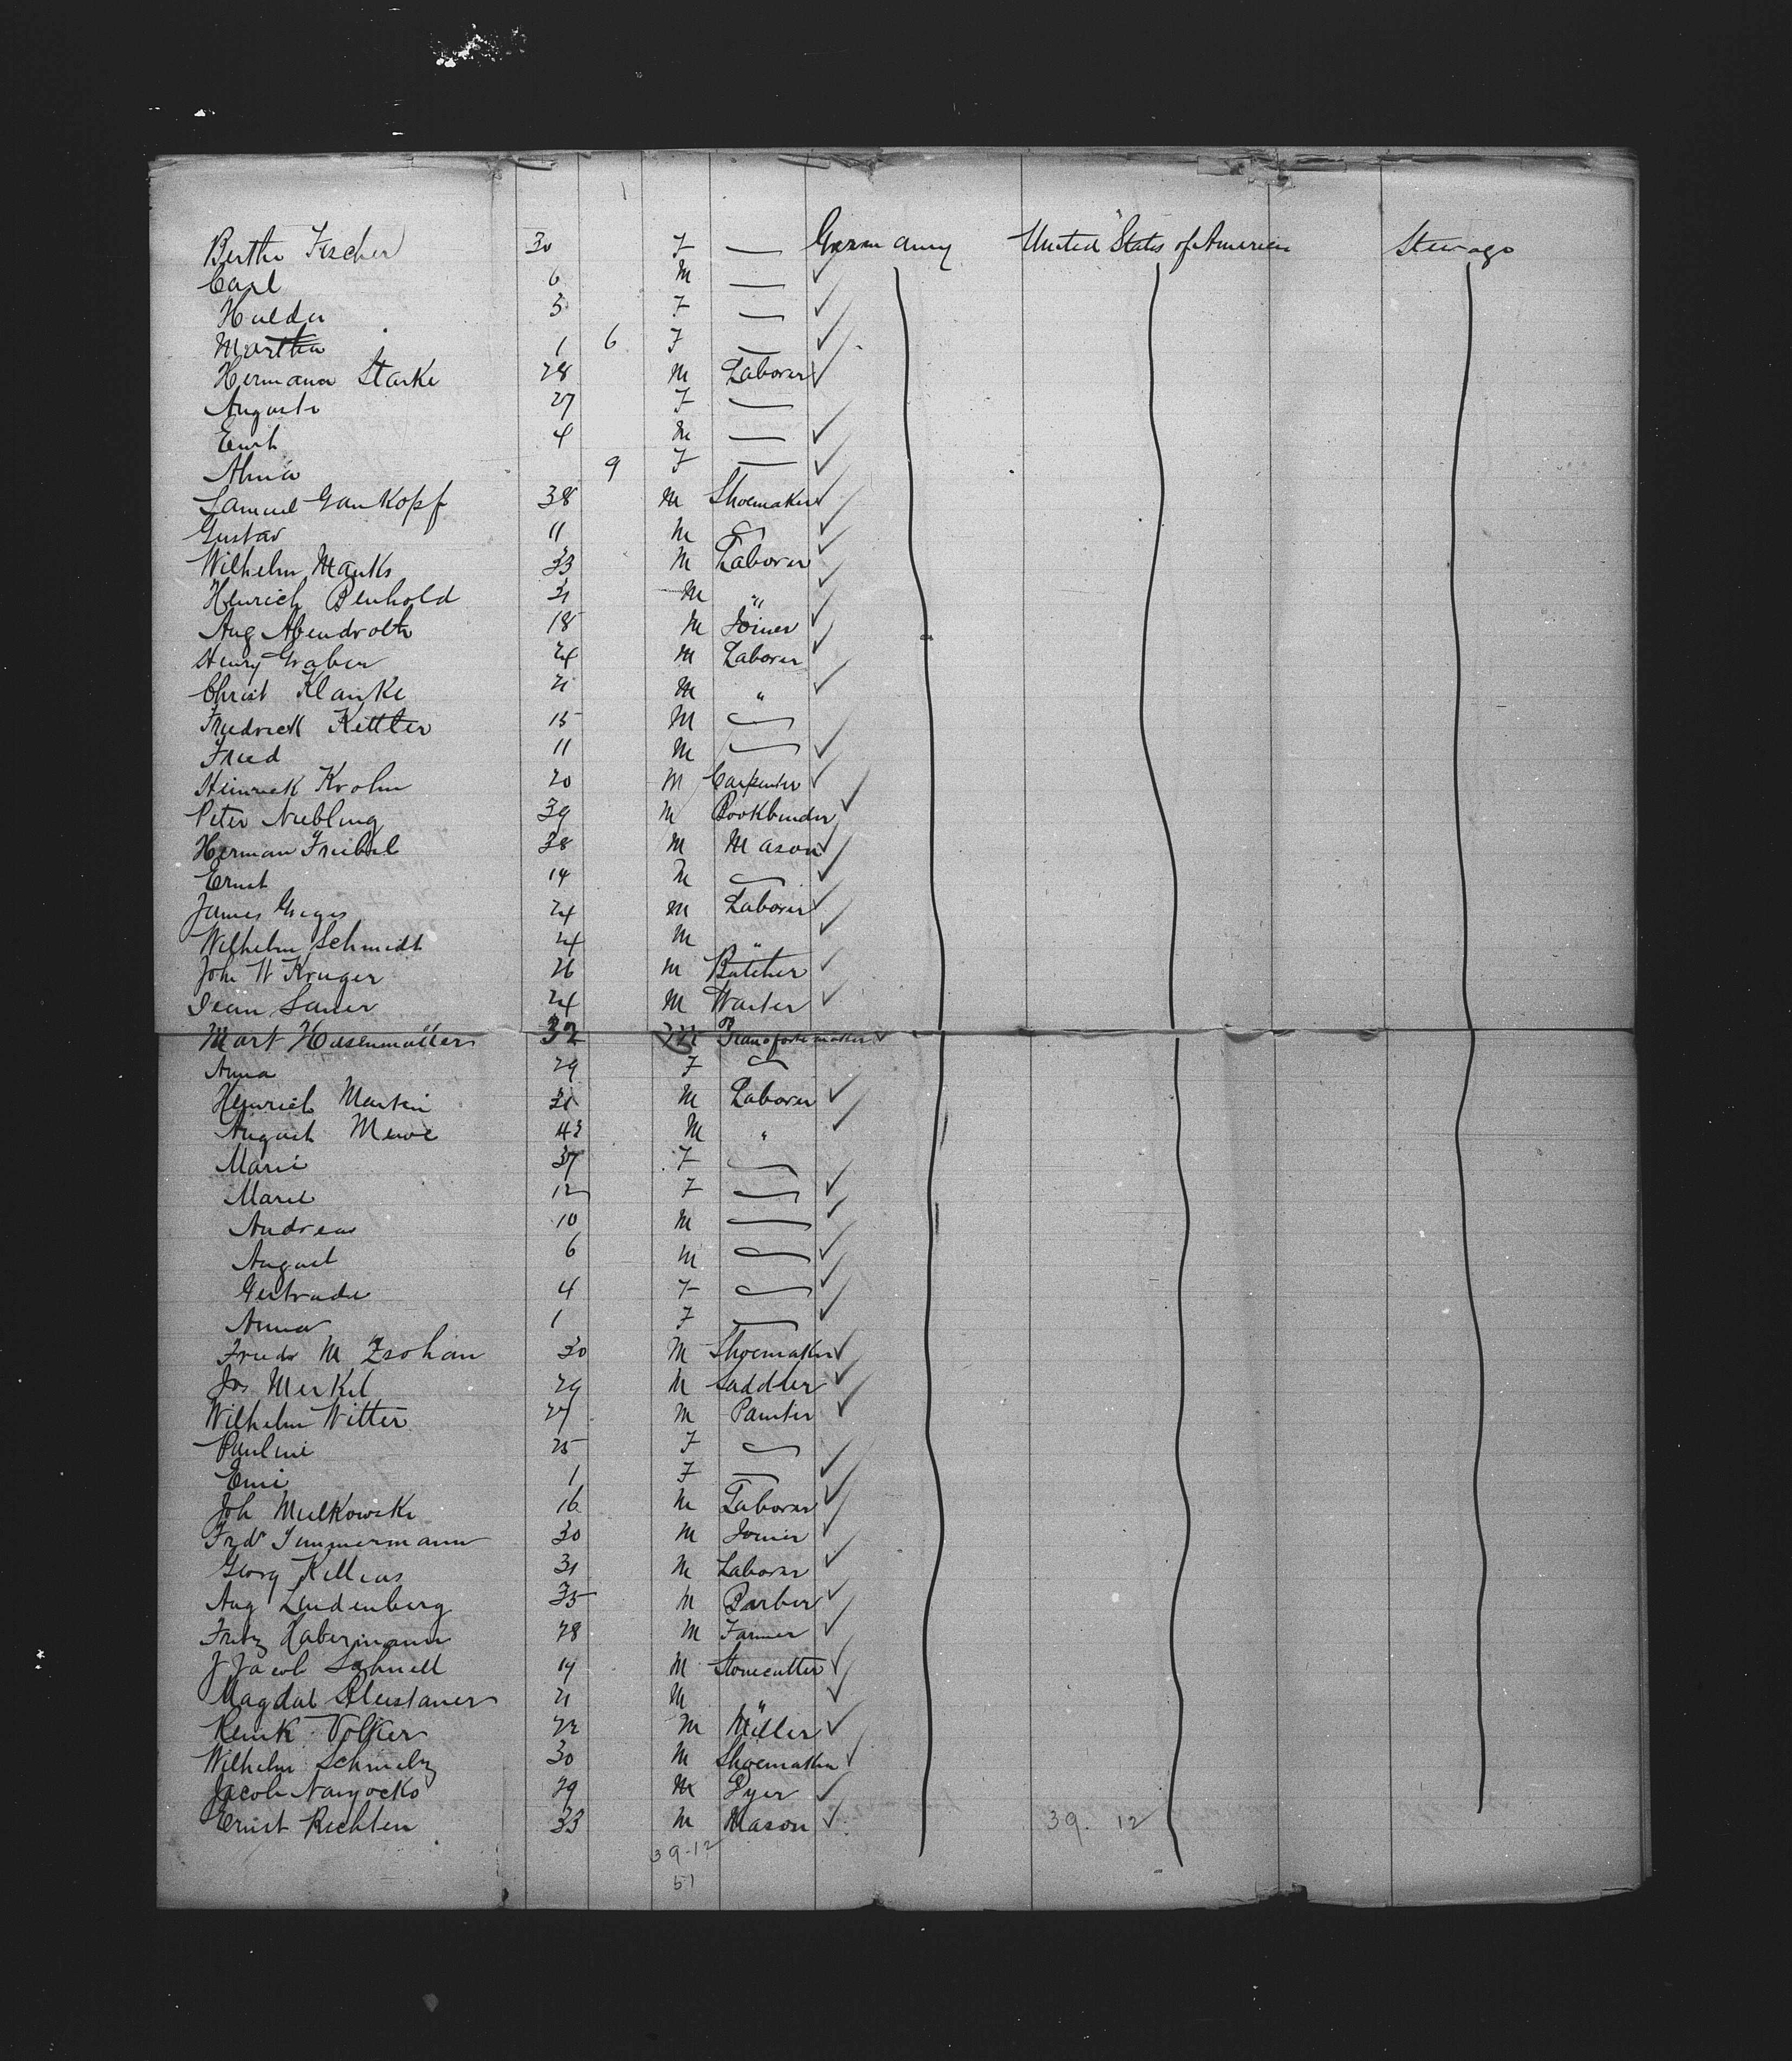 Bertha Fischer 30 F — Germany United States of America Steerage
Carl 6 M —
Hulda 3 F —
Martha 1 6 F —
Hermann Starke 28 M Laborer
Auguste 27 F —
Emil 4 M —
Alma 9 F —
Samuel Gankopf 38 M Shoemaker
Gustav 11 M —
Wilhelm Manks 33 M Laborer
Heinrich Benhold 31 M "
Aug Abendroth 18 M Joiner
Henry Graber 24 M Laborer
Christ Klanke 21 M "
Friedrich Kettler 15 M —
Fried 11 M —
Heinrick Krohn 20 M Carpenter
Peter Niebling 39 M Bookbinder
Herman Friebel 38 M Mason
Ernst 14 M —
James 24 M Laborer
Wilhelm Schmidt 24 M "
Joh W Kruger 26 M Butcher
Jean Sauer 24 M Waiter
Mart Hasenmüller 32 M Pianofortemaker
Anna 29 F —
Heinrich Martin 31 M Laborer
August Mewe 43 M "
Marie 37 F —
Marie 12 F —
Andreas 10 M —
August 6 M —
Gertrude 4 F —
Anna 1 F —
Friedr M Zsohan 30 M Shoemaker
Jos Merkel 29 M Saddler
Wilhelm Witter 27 M Painter
Pauline 25 F —
Emi 1 F —
Joh Mulkowski 16 M Laborer
Fred Timmermann 30 M Joiner
Georg Killius 31 M Laborer
Aug Lindenberg 35 M Barber
Fritz Habermann 28 M Farmer
J Jacob Schnell 19 M Stonecutter
Magdal 21 M "
Henrk Volker 22 M Miller
Wilhelm Schmelz 30 M Shoemaker
Jacob 29 M Dyer
Ernst Richter 33 M Mason 39. 12
39-12
51